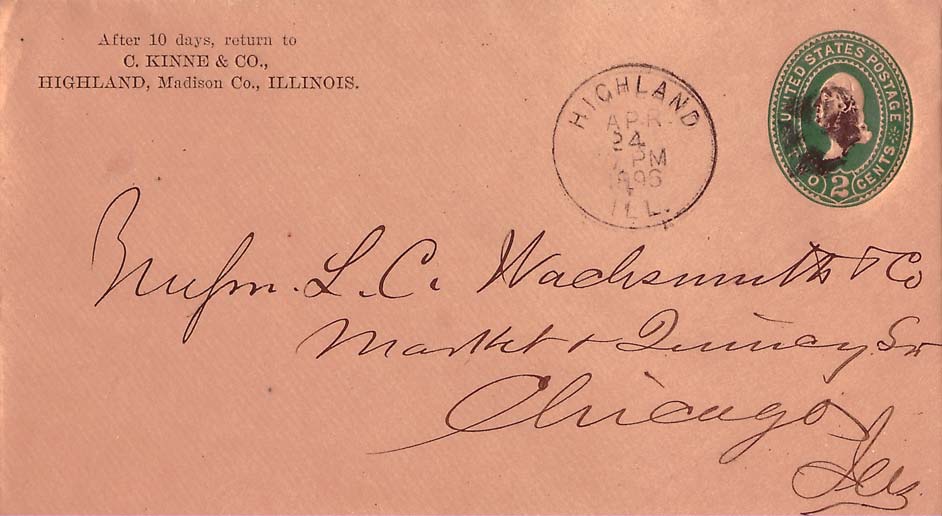 After 10 days, return to
C. KINNE & CO.,
HIGHLAND, Madison Co., ILLINOIS.
HIGHLAND
APR
24
PM
1896
ILL.
UNITED STATES POSTAGE
TWO 2 CENTS
Messrs. L. C. Wachsmuth & Co
Market & Quincy Sts
Chicago
Ills.